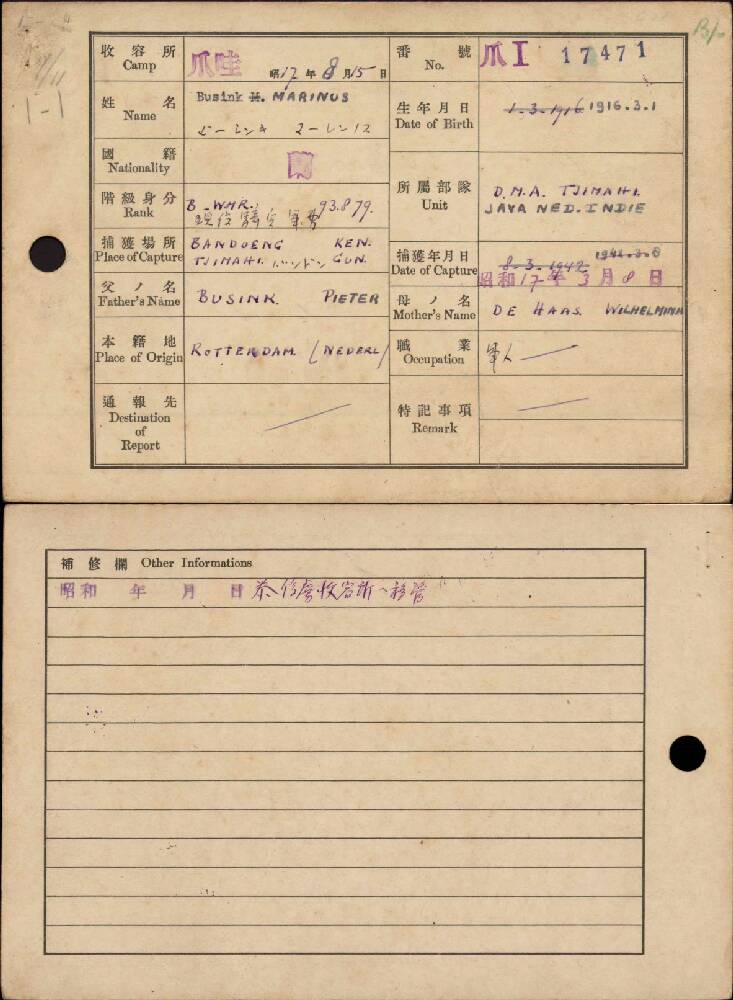 收容所 Camp
爪哇 昭17年8月15日
番號 No.
爪I 17471
姓名 Name
Busink M. MARINUS
生年月日 Date of Birth
1-3-1916 1916.3.1
國籍 Nationality
蘭
階級身分 Rank
B-WMR. 93.879.
所屬部隊 Unit
D.M.A. TJIMAHI.
JAVA NED. INDIE
捕獲場所 Place of Capture
BANDOENG KEN.
TJIMAHI. バンドン GUN.
捕獲年月日 Date of Capture
8-3-1942
昭和17年3月8日
父ノ名 Father's Name
BUSINK PIETER
母ノ名 Mother's Name
DE HAAS WILHELMINA
本籍地 Place of Origin
ROTTERDAM (NEDERL)
職業 Occupation
軍人
通報先
Destination
of
Report
特記事項
Remark
補修欄 Other Informations
昭和 年 月 日 泰俘虜收容所ヘ移管